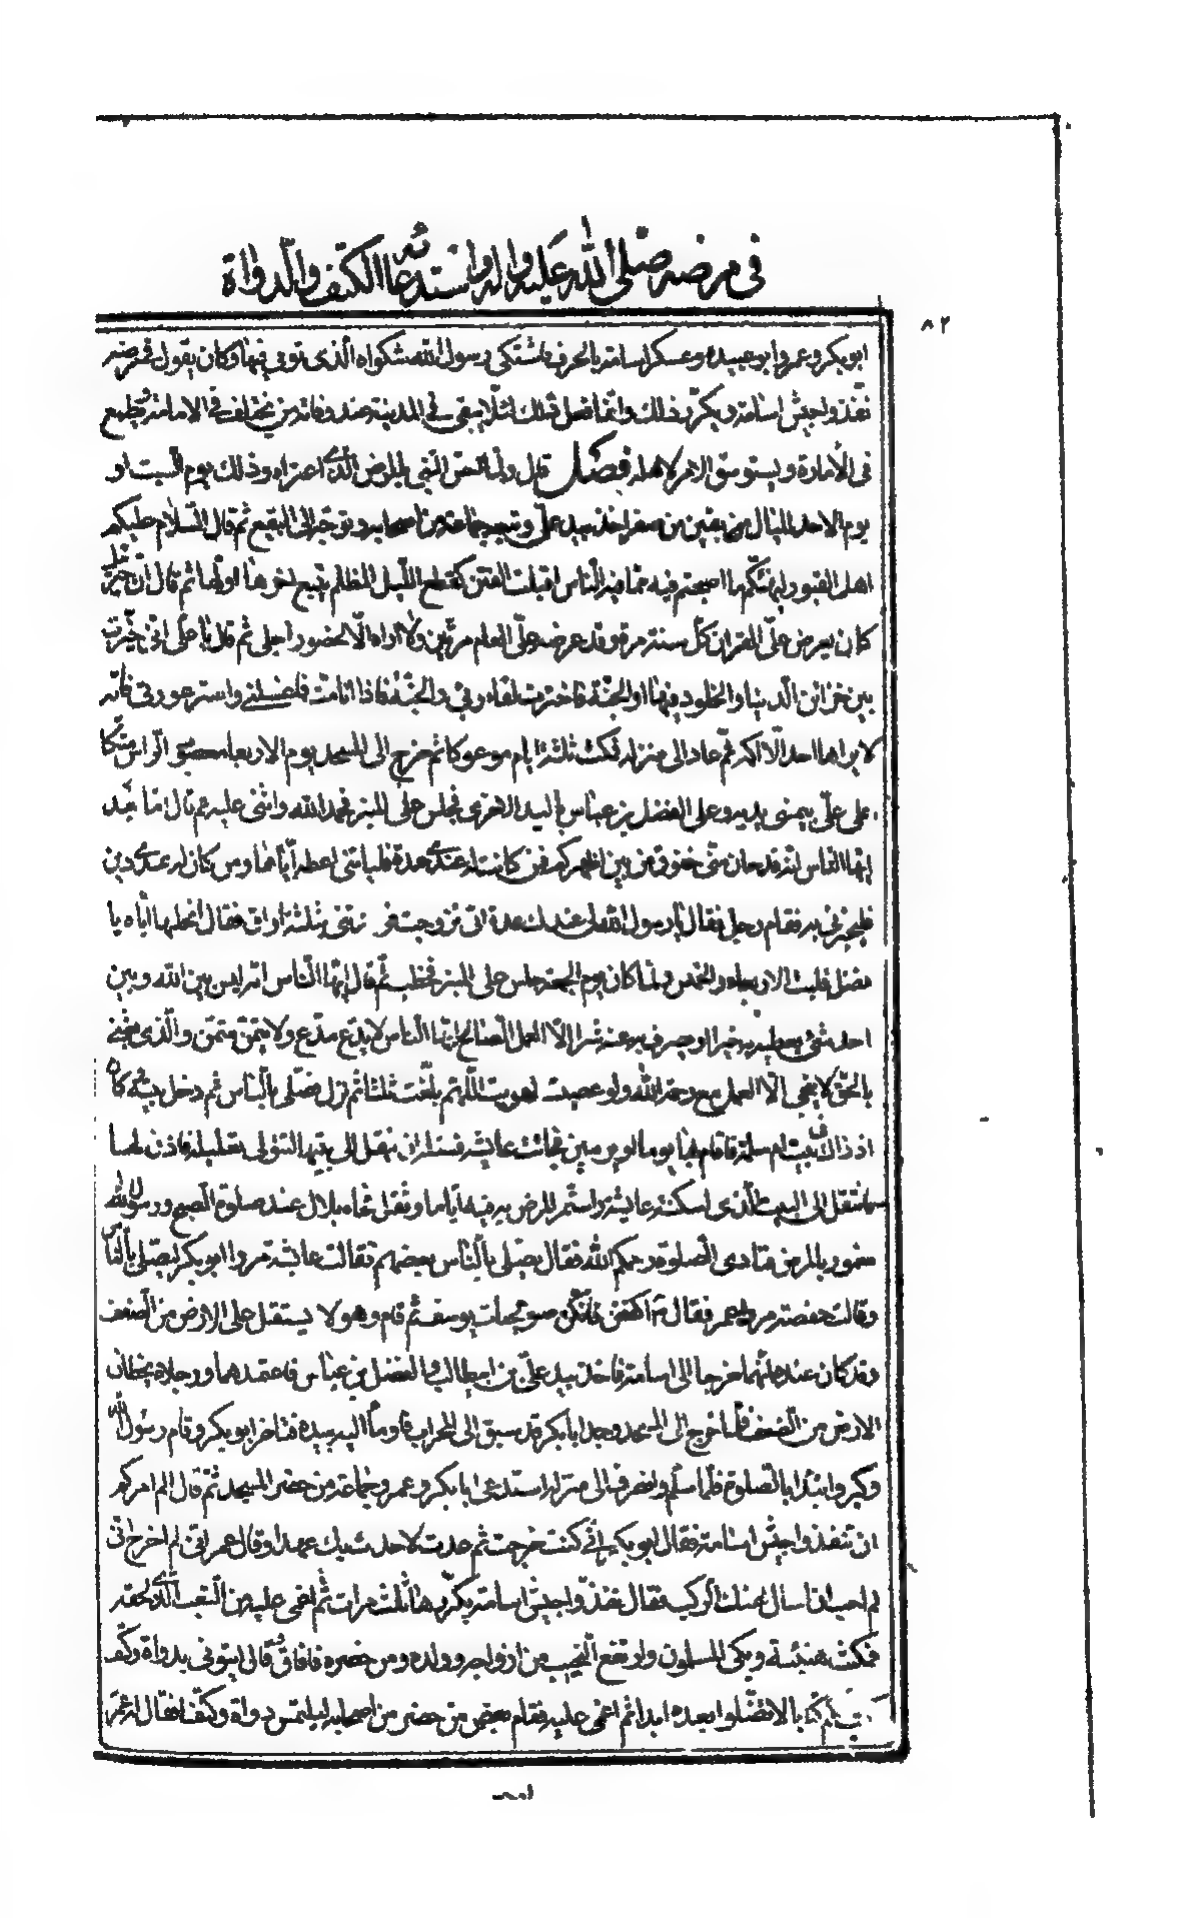 في مرضه صلى الله عليه واله واستدعائه الكتف والدواة
٨٢
ابو بكر وعمر وابو عبيدة وعسكر اسامة بالجرف فاشتكى رسول الله شكواه الذى توفي فيها وكان يقول في مرضه
نفذوا جيش اسامة ويكرر ذلك وانما فعل ذلك لئلا يبقى في المدينة عند وفاته من يختلف في الامامة ويطمع
في الأمارة ويستوسق الامر لاهله فصل قال ولما احس النبي بالمرض الذى اعتراه وذلك يوم السبت او
يوم الاحد لليال بقين من صفر اخذ بيد علي وتبعه جماعة من اصحابه وتوجه الى البقيع ثم قال السلام عليكم
اهل القبور ليهنئكم ما اصبحتم فيه مما فيه الناس اقبلت الفتن كقطع الليل المظلم يتبع اخرها اولها ثم قال ان جبرئيل
كان يعرض علي القران كل سنة مرة وقد عرضه علي العام مرتين ولا اراه الا لحضور اجلي ثم قال يا علي اني خيرت
بين خزائن الدنيا والخلود فيها او الجنة فاخترت لقاء ربي والجنة فاذا انا مت فاغسلني واستر عورتي فانه
لا يراها احد الا اكمه ثم عاد الى منزله فمكث ثلثة ايام موعوكا ثم خرج الى المسجد يوم الاربعا معصوب الراس متكئا
على علي بيمنى يديه وعلى الفضل بن عباس باليد الاخرى فجلس على المنبر فحمد الله واثنى عليه ثم قال اما بعد
ايها الناس انه قد حان مني خفوق من بين اظهركم فمن كانت له عندى عدة فلياتني اعطه اياها ومن كان له عندى دين
فليخبرني به فقام رجل فقال يا رسول الله لي عندك عدة اني تزوجت فوعدتني بثلثة اواق فقال انحلها اياه يا
فضل فلبث الاربعاء والخميس ولما كان يوم الجمعة جلس على المنبر فخطب ثم قال ايها الناس انه ليس بين الله وبين
احد شئ يعطيه به خيرا او يصرف به عنه شرا الا العمل الصالح ايها الناس لا يدع مدع ولا يتمن متمن والذى بعثني
بالحق لا ينجي الا العمل مع رحمة الله ولو عصيت لهويت اللهم بلغت ثلثا ثم نزل فصلى بالناس ثم دخل بيته وكان
اذ ذاك في بيت ام سلمة فاقام بها يوما او يومين فجائت عايشة فسئلته ان ينتقل الى بيتها لتتولى تعليله فاذن لها
فانتقل الى البيت الذى اسكنته عايشة واستمر المرض به فيه اياما وثقل فجاء بلال عند صلوة الصبح ورسول الله
مغمور بالمرض فنادى الصلوة رحمكم الله فقال يصلي بالناس بعضهم فقالت عايشة مروا ابو بكر ليصلي بالناس
وقالت حفصة مروا عمر فقال اكففن فانكن صويحبات يوسف ثم قام وهو لا يستقل على الارض من الضعف
وقد كان عنده انهما خرجا الى اسامة فاخذ بيد علي بن ابي طالب والفضل بن عباس فاعتمدهما ورجلاه يخطان
الارض من الضعف فلما خرج الى المسجد وجد ابا بكر قد سبق الى المحراب فاومأ اليه بيده فتاخر ابو بكر وقام رسول الله
وكبر وابتدا بالصلوة فلما سلم وانصرف الى منزله استدعى ابا بكر وعمر وجماعة من حضر المسجد ثم قال الم امركم
ان تنفذوا جيش اسامة فقال ابو بكر اني كنت خرجت ثم عدت لاحدث بك عهدا وقال عمر اني لم اخرج اني
لم احب ان اسال عنك الركب فقال نفذوا جيش اسامة يكررها ثلث مرات ثم اغمي عليه من التعب الذى لحقه
فمكث هنيئة وبكى المسلمون وارتفع النحيب من ازواجه وولده ومن حضره فافاق وقال ايتوني بدواة وكتف
اكتب لكم كتابا لا تضلوا بعده ابدا ثم اغمي عليه فقام بعض من حضر من اصحابه ليلتمس دواة وكتفا فقال له عمر